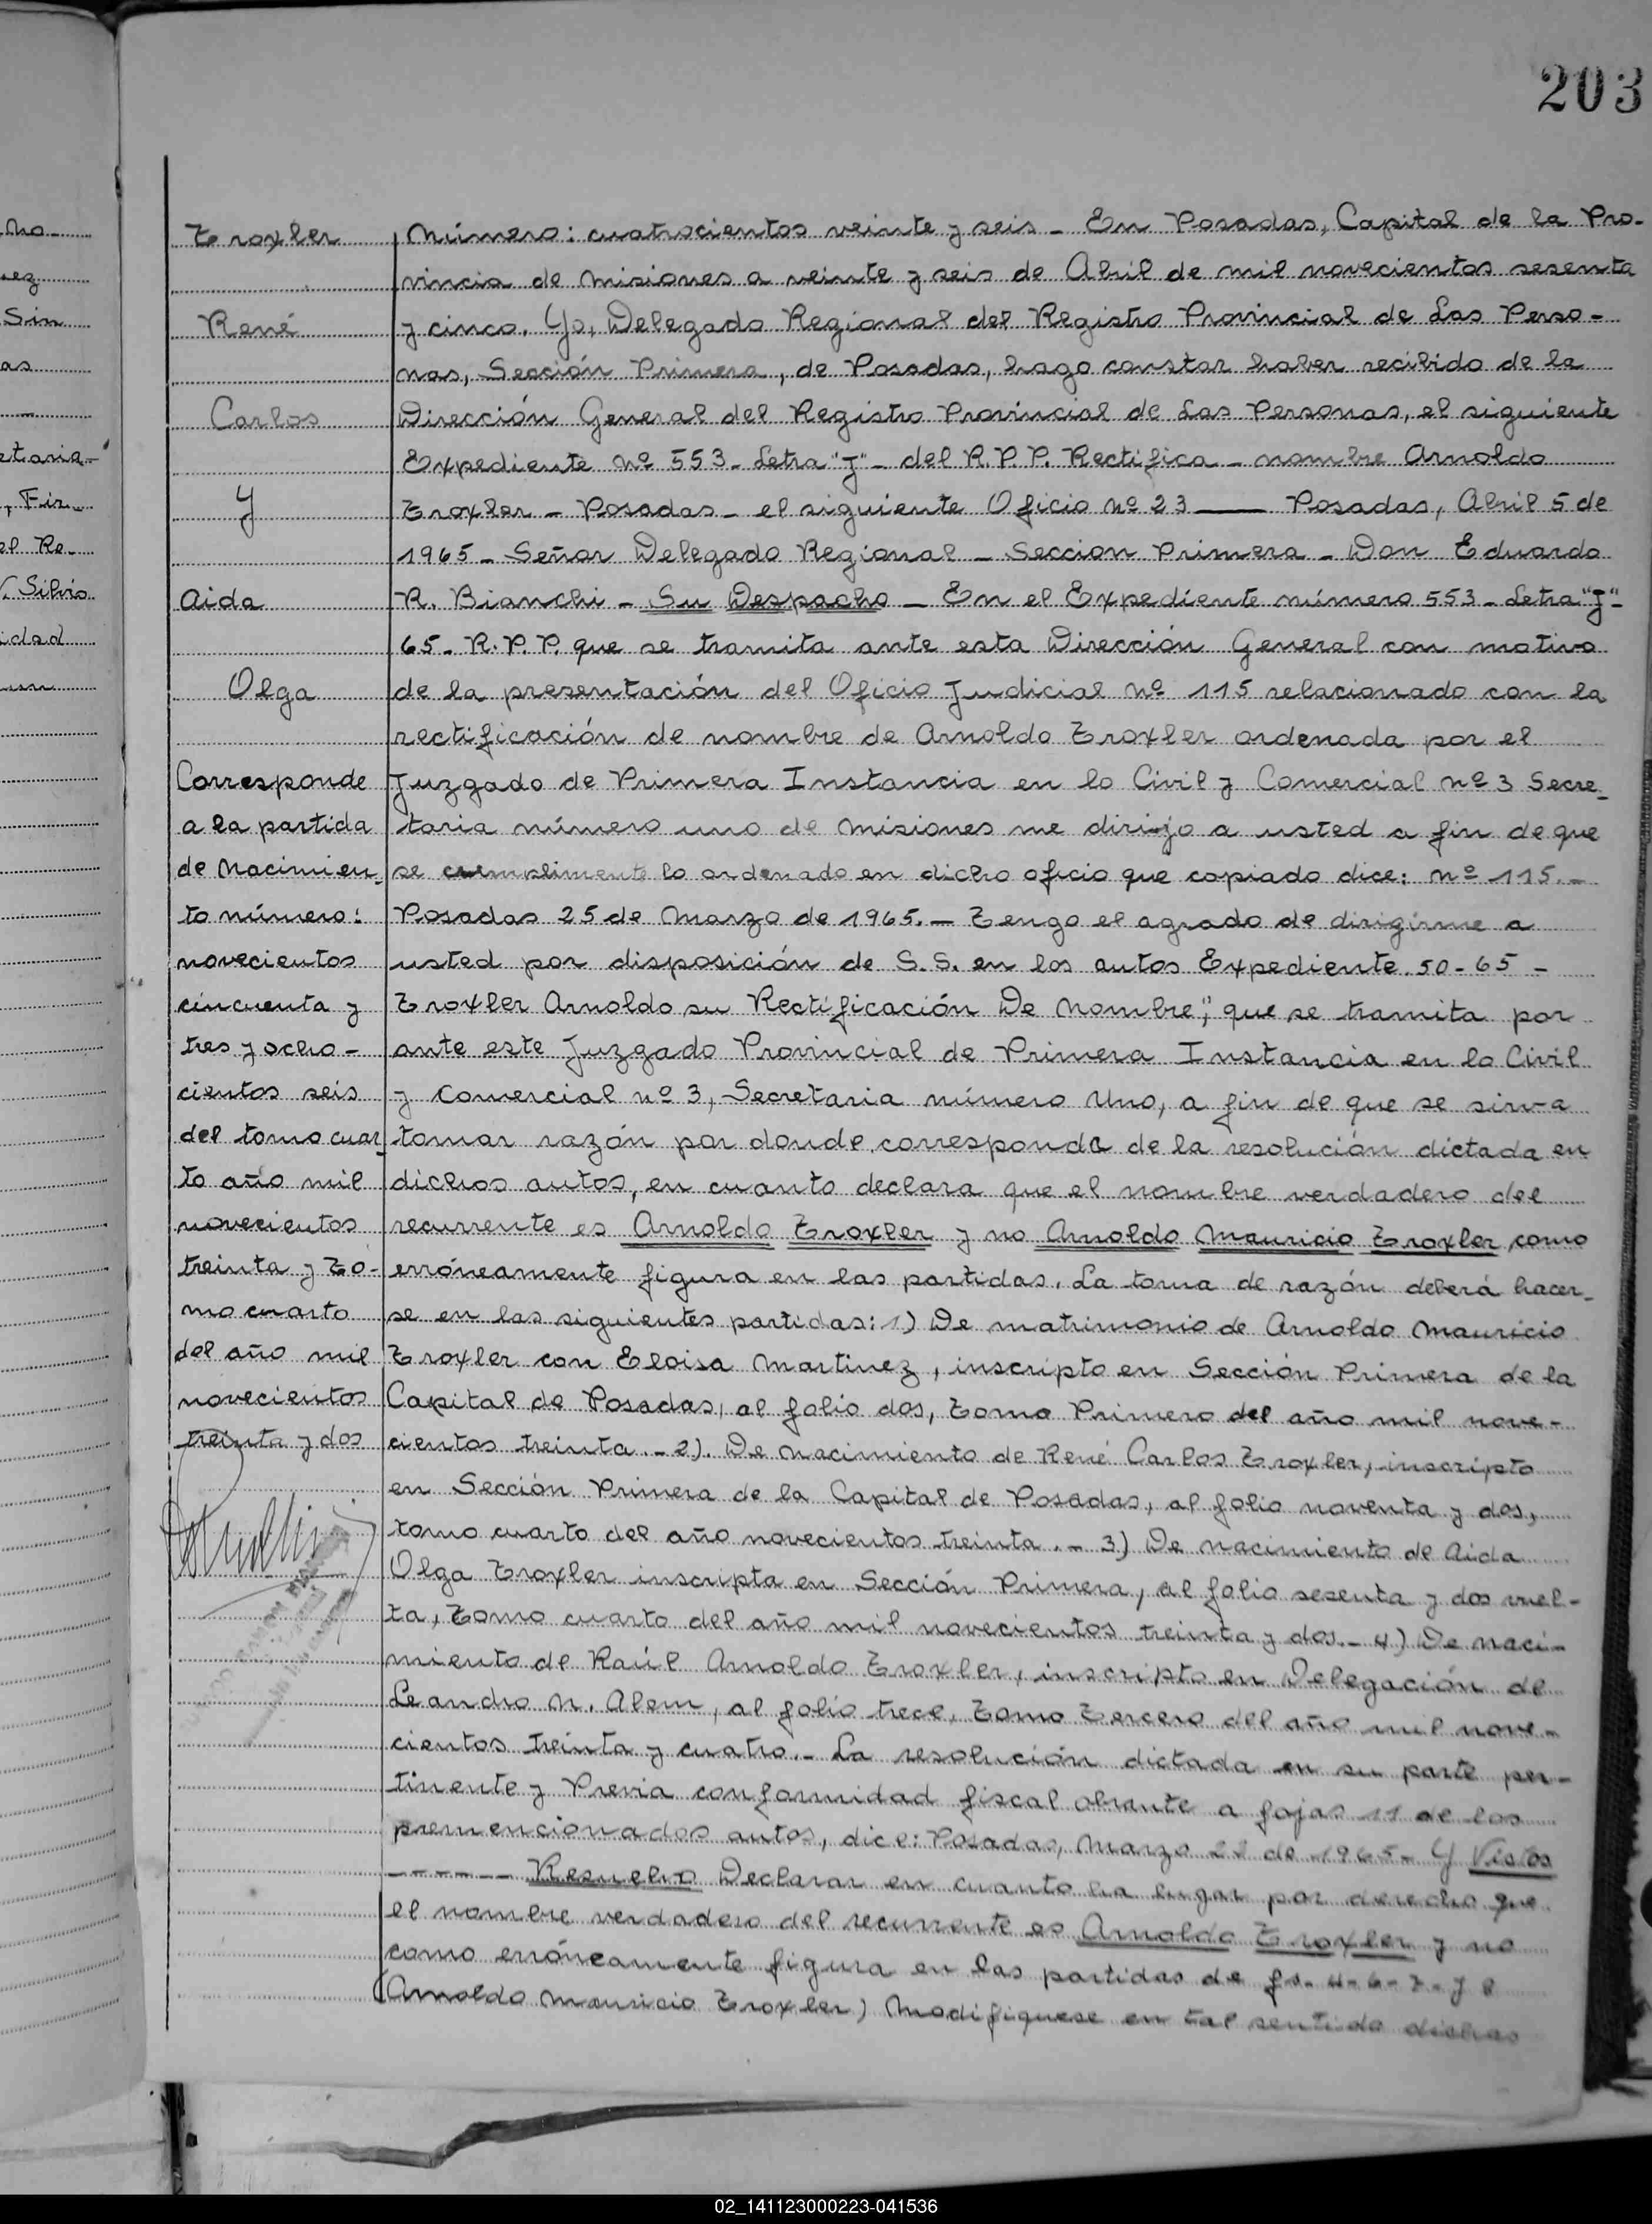 203
Troxler
René
Carlos
y
Aida
Olga
Corresponde
a la partida
de Nacimien-
to número:
novecientos
cincuenta y
tres y ocho-
cientos seis
del tomo cuar-
to año mil
novecientos
treinta y To-
mo cuarto
del año mil
novecientos
treinta y dos
Número: cuatrocientos veinte y seis - En Posadas, Capital de la Pro-
vincia de Misiones a veinte y seis de Abril de mil novecientos sesenta
y cinco. Yo, Delegado Regional del Registro Provincial de Las Perso-
nas, Sección Primera, de Posadas, hago constar haber recibido de la
Dirección General del Registro Provincial de Las Personas, el siguiente
Expediente nº 553 - Letra "J" - del R.P.P. Rectifica - nombre Arnoldo
Troxler - Posadas - el siguiente Oficio Nº 23 —— Posadas, Abril 5 de
1965 - Señor Delegado Regional - Seccion Primera - Don Eduardo
R. Bianchi - Su Despacho - En el Expediente número 553 - Letra "J" -
65 - R.P.P. que se tramita ante esta Dirección General con motivo
de la presentación del Oficio Judicial Nº 115 relacionado con la
rectificación de nombre de Arnoldo Troxler ordenada por el
Juzgado de Primera Instancia en lo Civil y Comercial nº 3 Secre-
taria número uno de Misiones me dirijo a usted a fin de que
se cumplimente lo ordenado en dicho oficio que copiado dice: nº 115.-
Posadas 25 de Marzo de 1965.- Tengo el agrado de dirigirme a
usted por disposición de S.S. en los autos Expediente 50-65 -
Troxler Arnoldo su Rectificación De Nombre", que se tramita por
ante este Juzgado Provincial de Primera Instancia en lo Civil
y Comercial nº 3, Secretaria número Uno, a fin de que se sirva
tomar razón por donde corresponda de la resolución dictada en
dichos autos, en cuanto declara que el nombre verdadero del
recurrente es Arnoldo Troxler y no Arnoldo Mauricio Troxler como
erróneamente figura en las partidas. La toma de razón deberá hacer-
se en las siguientes partidas: 1) De matrimonio de Arnoldo Mauricio
Troxler con Eloisa Martinez, inscripto en Sección Primera de la
Capital de Posadas, al folio dos, Tomo Primero del año mil nove-
cientos treinta.- 2). De Nacimiento de René Carlos Troxler, inscripto
en Sección Primera de la Capital de Posadas, al folio noventa y dos,
tomo cuarto del año novecientos treinta.- 3) De nacimiento de Aida
Olga Troxler inscripta en Sección Primera, al folio sesenta y dos vuel-
ta, Tomo cuarto del año mil novecientos treinta y dos.- 4) De naci-
miento de Raúl Arnoldo Troxler, inscripto en Delegación de
Leandro N. Alem, al folio trece, Tomo Tercero del año mil nove-
cientos treinta y cuatro.- La resolución dictada en su parte per-
tinente y Previa conformidad fiscal obrante a fojas 11 de los
premencionados autos, dice: Posadas, Marzo 22 de 1965- Y Vistos
------ Resuelvo Declarar en cuanto ha lugar por derecho que
el nombre verdadero del recurrente es Arnoldo Troxler y no
como erróneamente figura en las partidas de fs. 4-6-7- y 8
(Arnoldo Mauricio Troxler) Modifiquese en tal sentido dichas
02_141123000223-041536